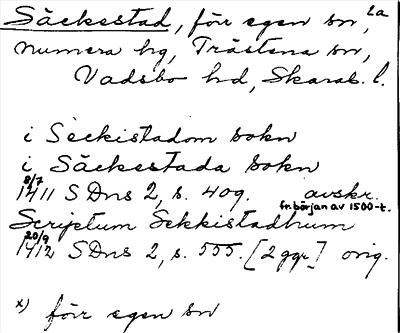 Säckestad, förr egen sn, 2a
numera hg, Trästena sn,
Vadsbo hd, Skarab. l.
i Seckistadom sokn
i Säckestada sokn
8/7
1411 SDns 2, s. 409. avskr.
fr. början av 1500-t.
Scriptum Sekkistadhum
20/9
1412 SDns 2, s. 555. [2 ggr] orig.
x) förr egen sn